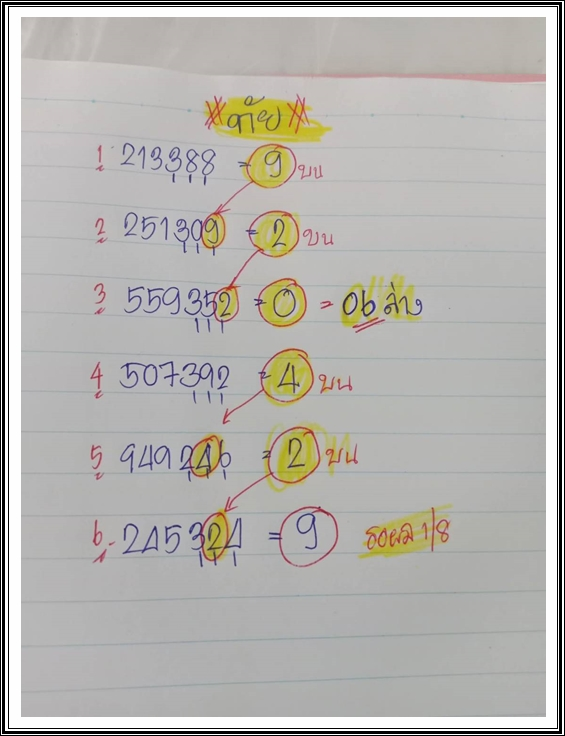 ท้าย
1 213388 = 9 บน
2 251309 = 2 บน
3 559352 = 0 = 06 ล่าง
4 507392 = 4 บน
5 949246 = 2 บน
6. 245324 = 9 รอผล 1/8